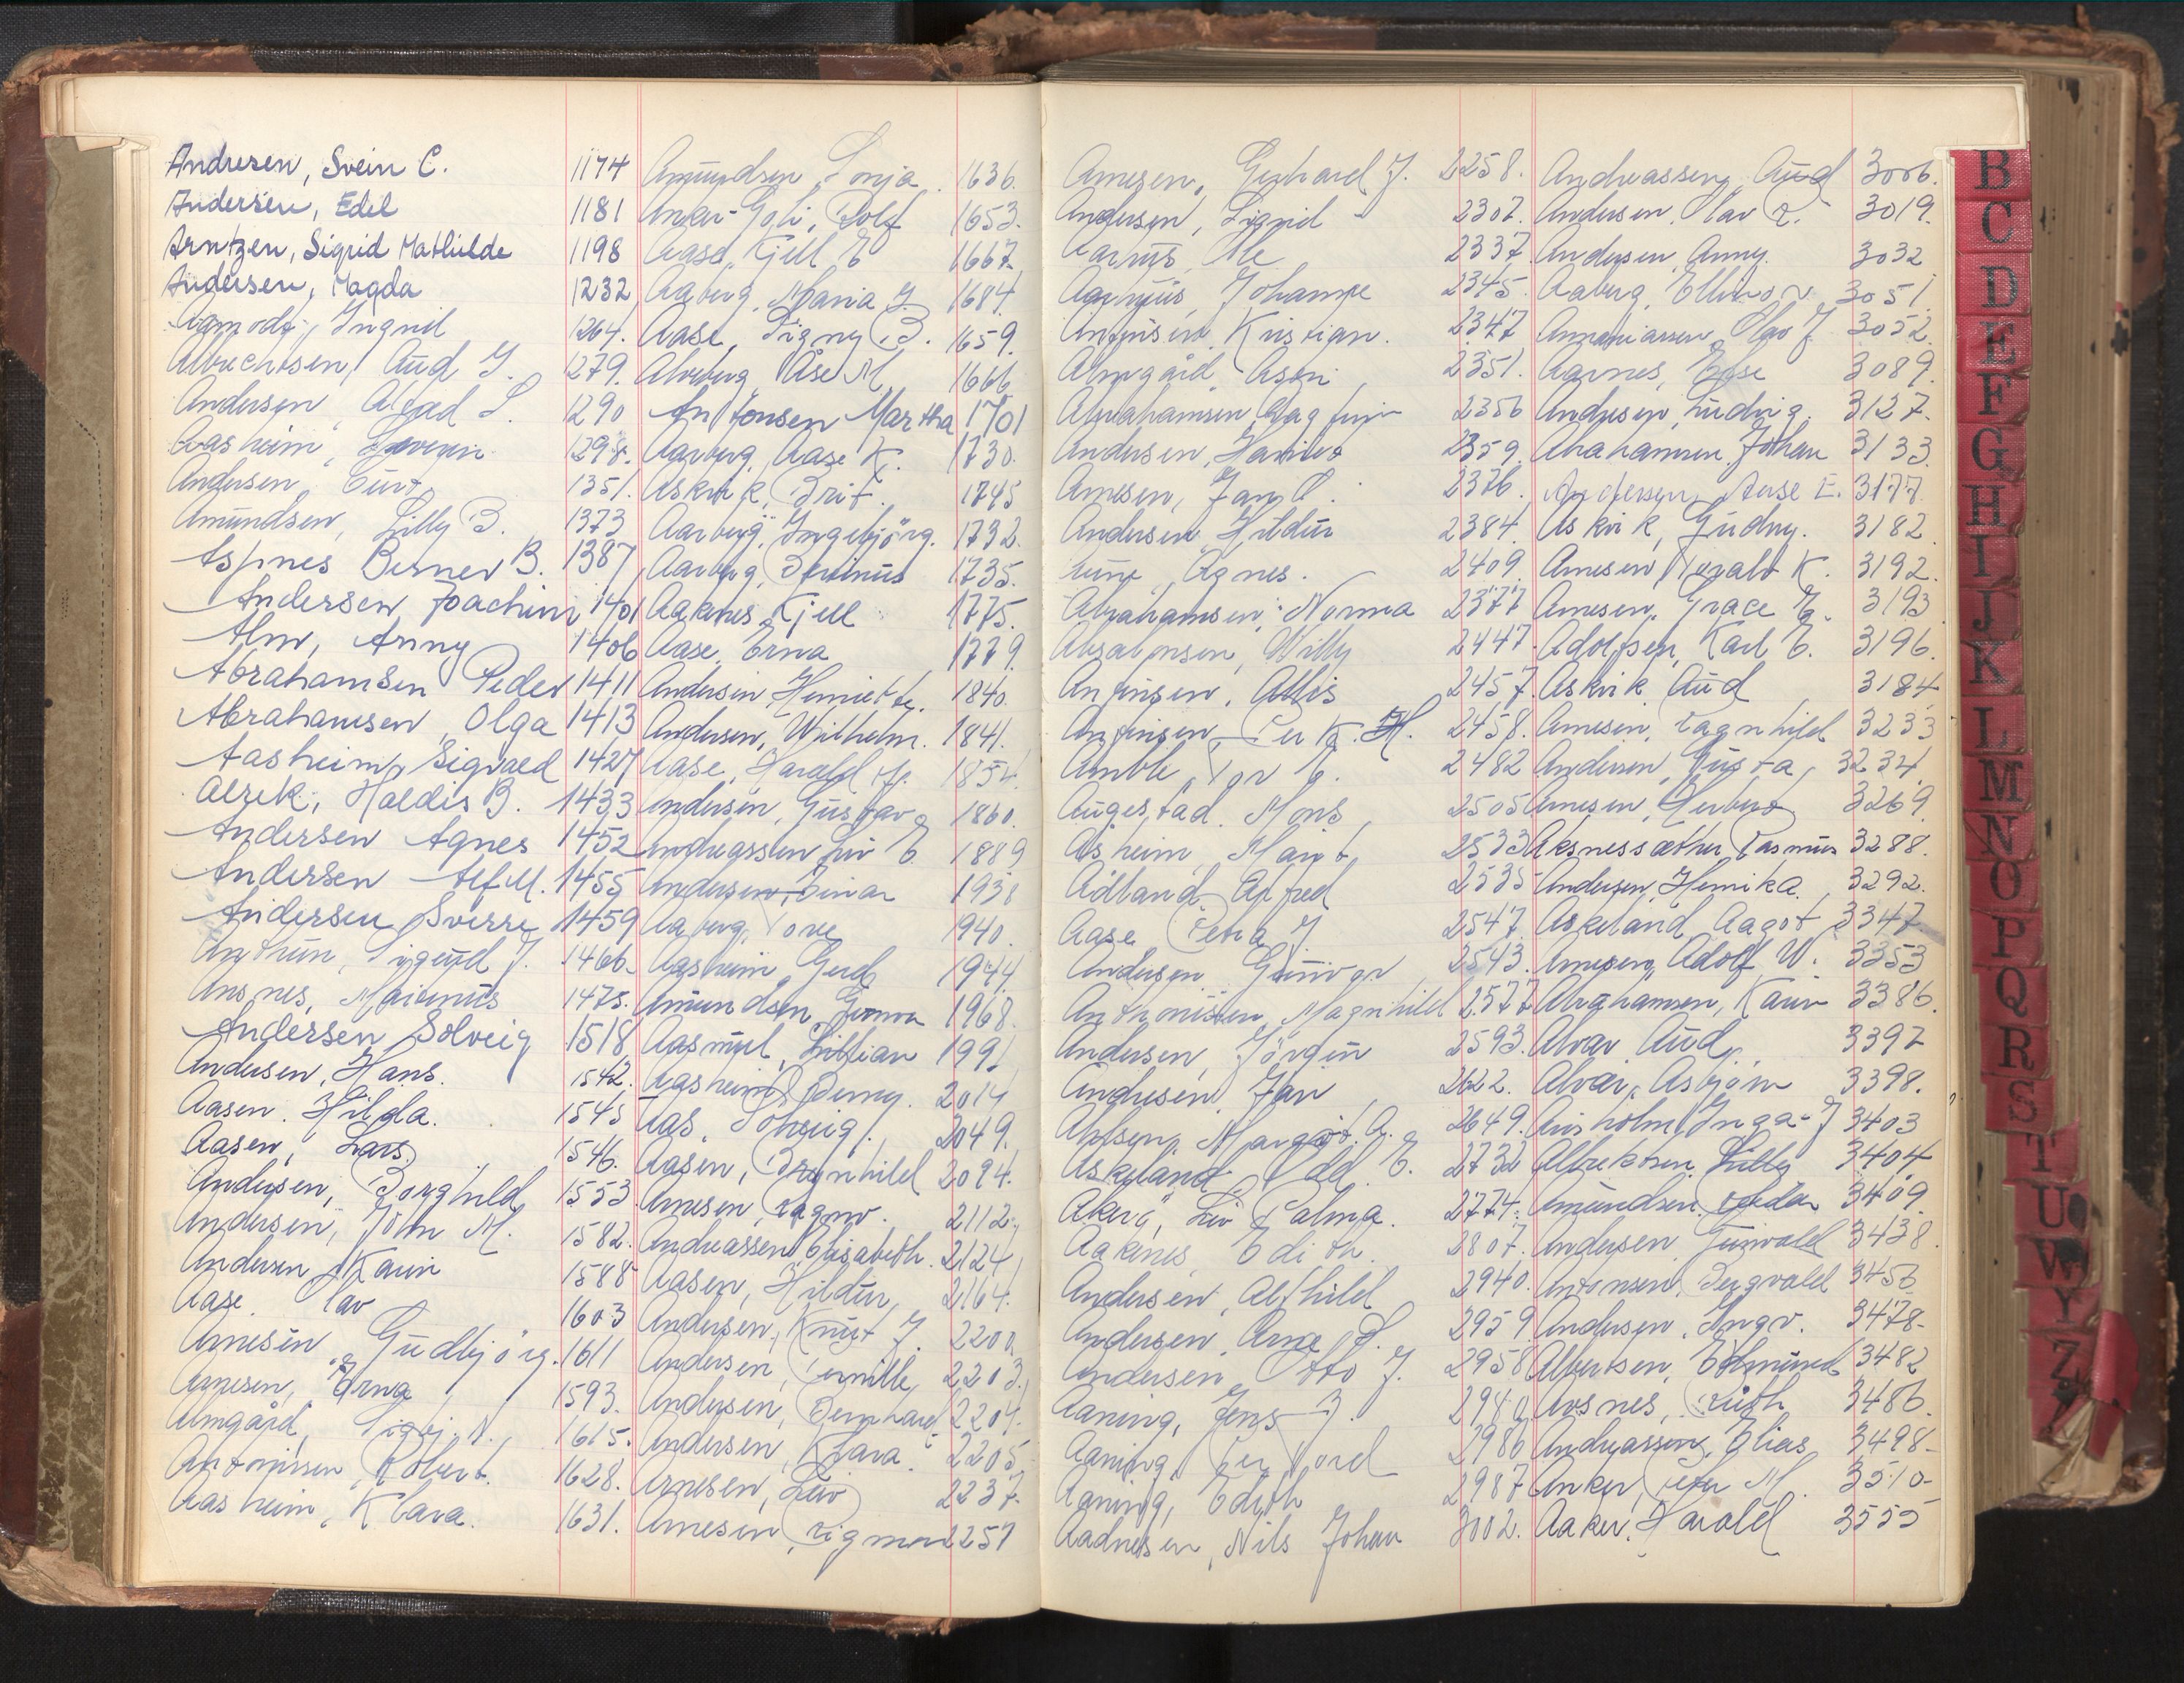 Andresen, Svein C. 1174
Andersen, Edel 1181
Arntzen, Sigrid Mathilde 1198
Andersen, Magda 1232
Aamodt, Ingrid 1264.
Albrechtsen, Aud J. 1279.
Andersen, Alfred L. 1290
Aasheim, 1298.
Andersen, Curt 1351.
Amundsen, Lilly B. 1373
Aspnes Berner B. 1387
Andersen Joachim 1401
Alm, Anny 1406
Abrahamsen Peder 1411
Abrahamsen, Olga 1413
Aasheim, Sigvald 1427
Alrek, Haldis B. 1433
Andersen Agnes 1452
Andersen Alf M. 1455
Andersen Sverre 1459
Antun, Sigurd J. 1466.
Aasnes, Marinus 1475.
Andersen Solveig 1518
Andersen, Hans. 1542.
Aasen. Hilda. 1545
Aasen, Lars. 1546.
Andersen, Borghild 1553
Andersen, John M. 1582.
Andersen Karin 1588
Aase. Olav 1603
Arnesen, Gudbjörg. 1611
Arnesen, Erna 1593.
Almgård, N. 1615.
Antonisen, Robert. 1628.
Aasheim, Klara. 1631.
Amundsen, Sonja. 1636.
Anker-Goli, Rolf 1653.
Aase, Kjell E 1667.
Aaberg, Maria J. 1684.
Aase, Signy B. 1659.
Alvberg, Åse M. 1666
Antonsen Martha 1701
Aarberg, Aase K. 1730.
Askvik, Brit. 1745
Aarberg, Ingebjörg. 1732.
Aarberg, 1735.
Aaknes, Kjell 1775.
Aase, Erna 1779.
Andersen Henriette. 1840.
Andersen, Wilhelm. 1841.
Aase, Harald M. 1854.
Andersen, Gustav 1860.
Andreassen Liv E. 1889
Andersen, Einar 1938
Aaberg, Tove 1940.
Aasheim Gerd 1944.
Amundsen, Gunvor 1968.
Aasmul, Lillian 1991
Aasheim, Benny. 2014
Aas, Solveig. 2049.
Aasen, Brynhild 2094.
Arnesen, Ragnv. 2112.
Andreassen Elisabeth. 2124
Aasen, Hildur 2164.
Andersen, Knut J. 2200.
Andersen, Pernille 2203.
Andersen, Bernhard 2204.
Andersen, Klara. 2205
Arnesen, Liv 2237.
Arnesen, Sigmor 2257
Arnesen, Gerhard J. 2258.
Andersen, Sigrid 2307.
Aarhus, Ole 2337.
Aarhus, Johanne 2345.
Anfinsen, Kristian. 2347
Almgård, Asfri 2351.
Abrahamsen, Dagfinn 2356
Andersen, Harriet 2359.
Arnesen, Jan O. 2376.
Andersen Hildur 2384.
Lund, Agnes. 2409
Abrahamsen, Norma 2377
Absalonsen, Willy 2447.
Anfinsen, Allis 2457.
Anfinsen, Per K. H. 2458.
Amble, Tor E. 2482
Augestad. Mons 2505
Åsheim, Marit 2533
Ådland. Alfred 2535
Aase Petra J. 2547.
Andersen Gunvor 2543.
Anthonisen, Magnhild 2577
Andersen, Jörgen 2593.
Andresen Jan 2622.
Ahlsen, Margot. A. 2649.
Askeland Odd E. 2732
Akerö, Liv Palma. 2774.
Aaknes, Edith. 2807.
Andersen, Alfhild 2940.
Andersen, Arne S. 2959
Andersen, Otto J. 2958
Aaning, Jens J. 2980
Aaning, Per Tord 2986
Aaning, Edith 2987
Aadnesen, Nils Johan 3002.
Andreassen, Aud 3006.
Andersen. Olav R. 3019.
Andersen, Anny. 3032
Aaberg, Ellinor 3051.
Annaniassen, Olav J. 3052.
Aarnes, Else 3089.
Andersen, Ludvig. 3127.
Abrahamsen, Johan 3133
Andersen, Aase E. 3177.
Askvik, Gudny. 3182
Arnesen, Torald K. 3192.
Arnesen, Grace E. 3193
Adolfsen, Karl E. 3196.
Askvik Aud 3184
Arnesen, Ragnhild 3233
Andersen, Gusta, 3234.
Arnesen, Herbert 3269
Aksnessæther Rasmus 3288.
Andersen, Henrika. 3292.
Askeland Aagot 3347.
Arnesen, Adolf W. 3353
Abrahamsen, Karin 3386.
Alvær Aud 3397
Alvær, Asbjørn 3398.
Inga J 3403
Albrektsen Lilly 3404
Amundsen 3409
Andersen Gunvald 3438.
Antonsen, Bergvald 3456
Andersen, Ingv. 3478-
Albertsen, Edmund 3482
Aasnes, Ruth 3486.
Andreassen, Elias 3498-
Anker, Peter M. 3510-
Aaker, Harald 3555
B
C
D
E
F
G
H
I
J
K
L
M
N
O
P
Q
R
S
T
U
W
Y
Z